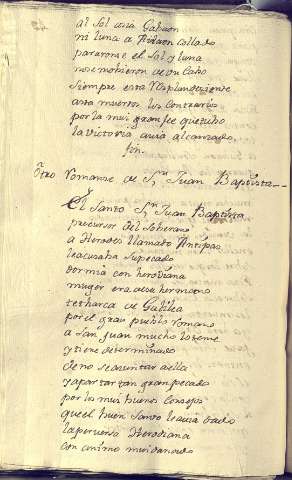 al Sol cona Gabaon
ni luna a Aialaon collado
pararonse el Sol y luna
no se mobieron de su Cabo
siempre esto Resplandeciente
asta muertos los Contrarios
por la mui gran fee que tubo
la victoria avia alcanzado
fin.
Otro Romanse de Sn. Juan Baptista
El Santo Sn. Juan Baptista
precursor del Soberano
a Herodes llamado Antipas
le acusaba su pecado
dormia con herodiana
muger era de su hermano
tetrarca de Galilea
por el gran pueblo romano
a San Juan mucho lo teme
y tiene determinado
de no se ajuntar a ella
y apartar tan gran pecado
por los mui buenos consejos
que el buen santo le avia dado
la perversa Herodiana
con animo mui danado